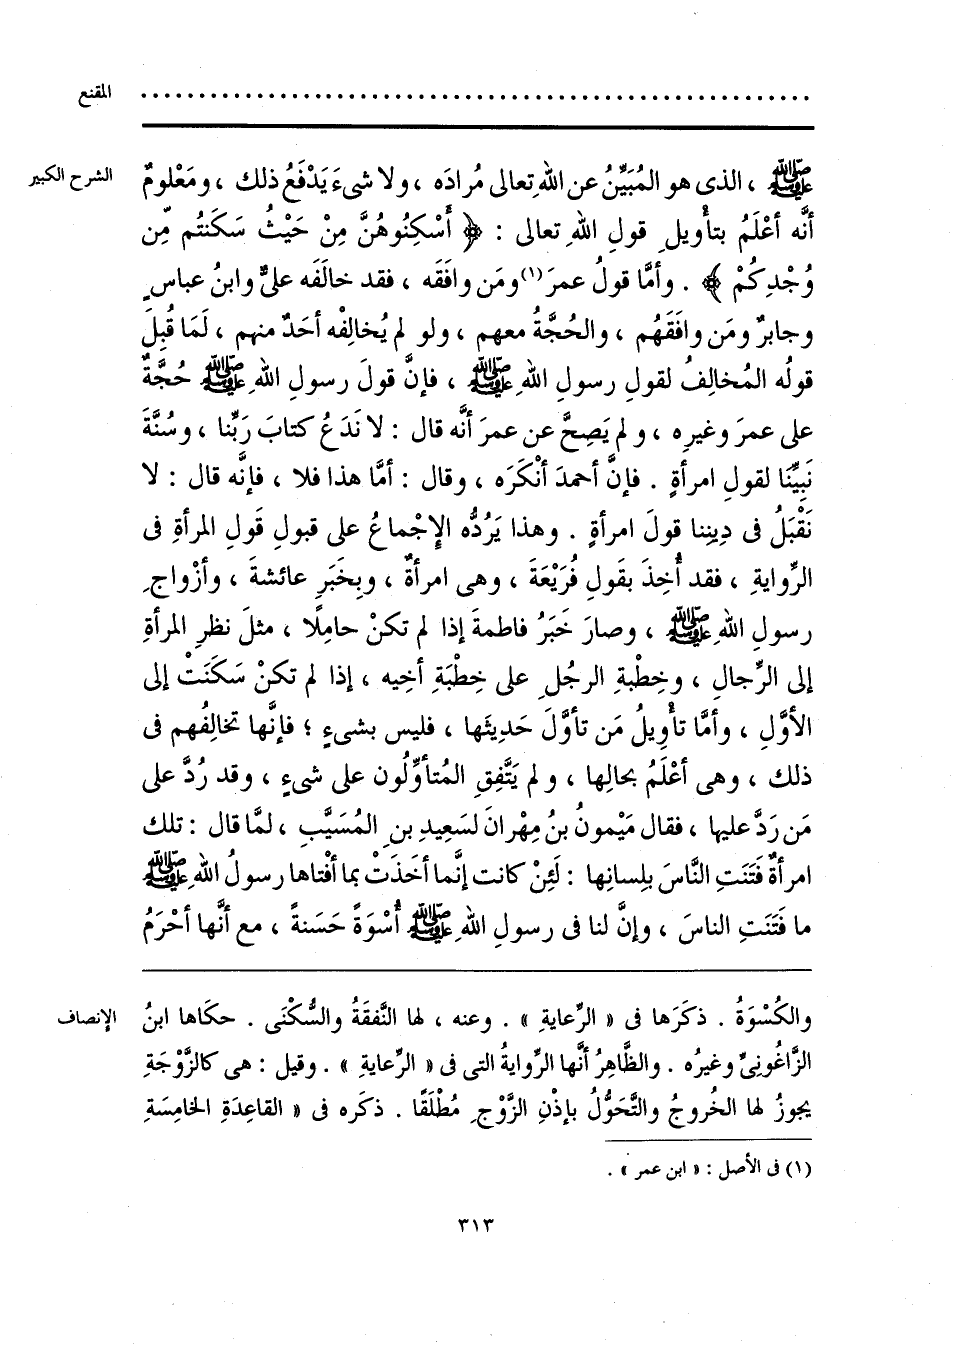 المقنع ........................................................
الشرح الكبير
ﷺ ، الذى هو المُبَيِّنُ عن اللهِ تعالى مُرادَه ، ولا شىءَ يَدْفَعُ ذلك ، ومَعْلومٌ
أنَّه أعْلَمُ بتأْويلِ قولِ اللهِ تعالى : ﴿ أَسْكِنُوهُنَّ مِنْ حَيْثُ سَكَنتُم مِّن
وُجْدِكُمْ ﴾ . وأمَّا قولُ عمرَ(١) ومَن وافَقَه ، فقد خالَفَه علىٌّ وابنُ عباسٍ
وجابرٌ ومَن وافَقَهُم ، والحُجَّةُ معهم ، ولو لم يُخالِفْه أحَدٌ منهم ، لَمَا قُبِلَ
قولُه المُخالِفُ لقولِ رسولِ اللهِ ﷺ ، فإنَّ قولَ رسولِ اللهِ ﷺ حُجَّةٌ
على عمرَ وغيرِه ، ولم يَصِحَّ عن عمرَ أنَّه قال : لا نَدَعُ كتابَ رَبِّنا ، وسُنَّةَ
نَبِيِّنَا لقولِ امرأةٍ . فإنَّ أحمدَ أنْكَرَه ، وقال : أمَّا هذا فلا ، فإنَّه قال : لا
نَقْبَلُ فى دِينِنا قولَ امرأةٍ . وهذا يَرُدُّه الإِجْماعُ على قبولِ قَولِ المرأةِ فى
الرِّوايةِ ، فقد أُخِذَ بقَولِ فُرَيْعَةَ ، وهى امرأةٌ ، وبِخَبَرِ عائشةَ ، وأزْواجِ
رسولِ اللهِ ﷺ ، وصارَ خَبَرُ فاطمةَ إذا لم تكنْ حامِلًا ، مثلَ نظرِ المرأةِ
إلى الرِّجالِ ، وخِطْبةِ الرجُلِ على خِطْبَةِ أخِيه ، إذا لم تكنْ سَكَنَتْ إلى
الأوَّلِ ، وأمَّا تأْوِيلُ مَن تأوَّلَ حَدِيثَها ، فليس بشىءٍ ؛ فإنَّها تخالِفُهم فى
ذلك ، وهى أعْلَمُ بحالِها ، ولم يَتَّفِقِ المُتأوِّلُون على شىءٍ ، وقد رُدَّ على
مَن رَدَّ عليها ، فقال مَيْمونُ بنُ مِهْرانَ لسَعِيدِ بنِ المُسَيَّبِ ، لمَّا قال : تلك
امرأةٌ فَتَنَتِ النَّاسَ بلِسانِها : لَئِنْ كانت إنَّما أخَذَتْ بما أفْتاها رسولُ اللهِ ﷺ
ما فَتَنَتِ الناسَ ، وإنَّ لنا فى رسولِ اللهِ ﷺ أُسْوَةً حَسَنةً ، مع أنَّها أحْرَمُ
الإنصاف
والكُسْوَةُ . ذكَرَها فى « الرِّعايةِ » . وعنه ، لها النَّفقَةُ والسُّكْنَى . حكَاها ابنُ
الزَّاغُونِىِّ وغيرُه . والظَّاهِرُ أنَّها الرِّوايةُ التى فى « الرِّعايةِ » . وقيل : هى كالزَّوْجَةِ
يجوزُ لها الخُروجُ والتَّحَوُّلُ بإذْنِ الزَّوْجِ مُطْلَقًا . ذكَره فى « القاعِدَةِ الخامِسَةِ
(١) فى الأصل : « ابن عمر » .
٣١٣